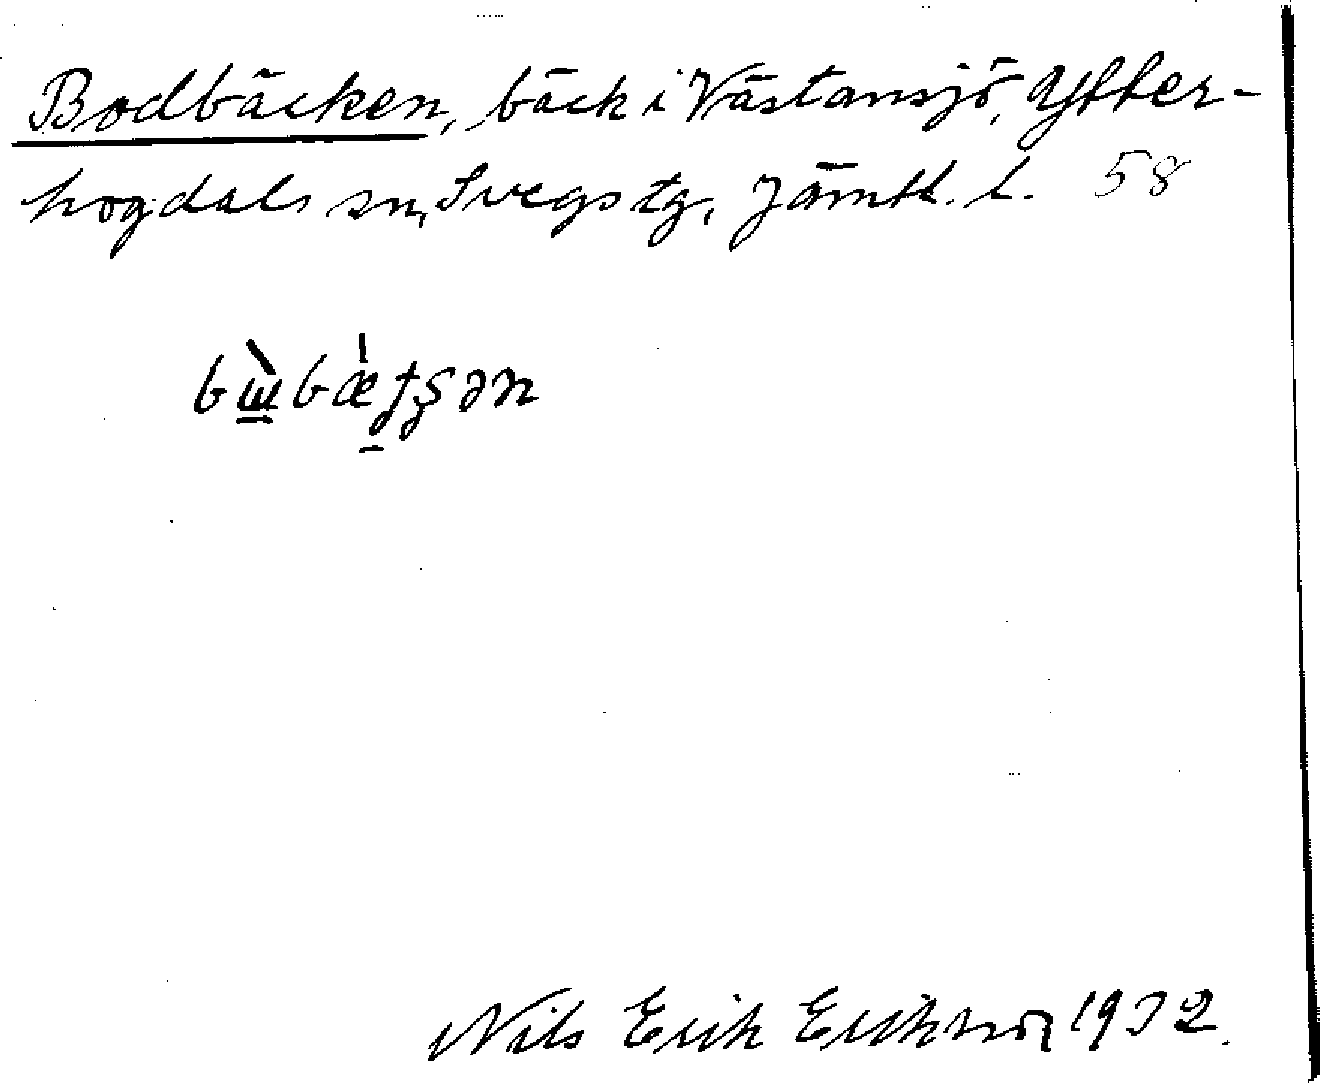 Bodbäcken, bäck i Västansjö, Ytter-
hogdals sn, Svegs tg, Jämtl. l. 58
Nils Erik Erikson 1932.